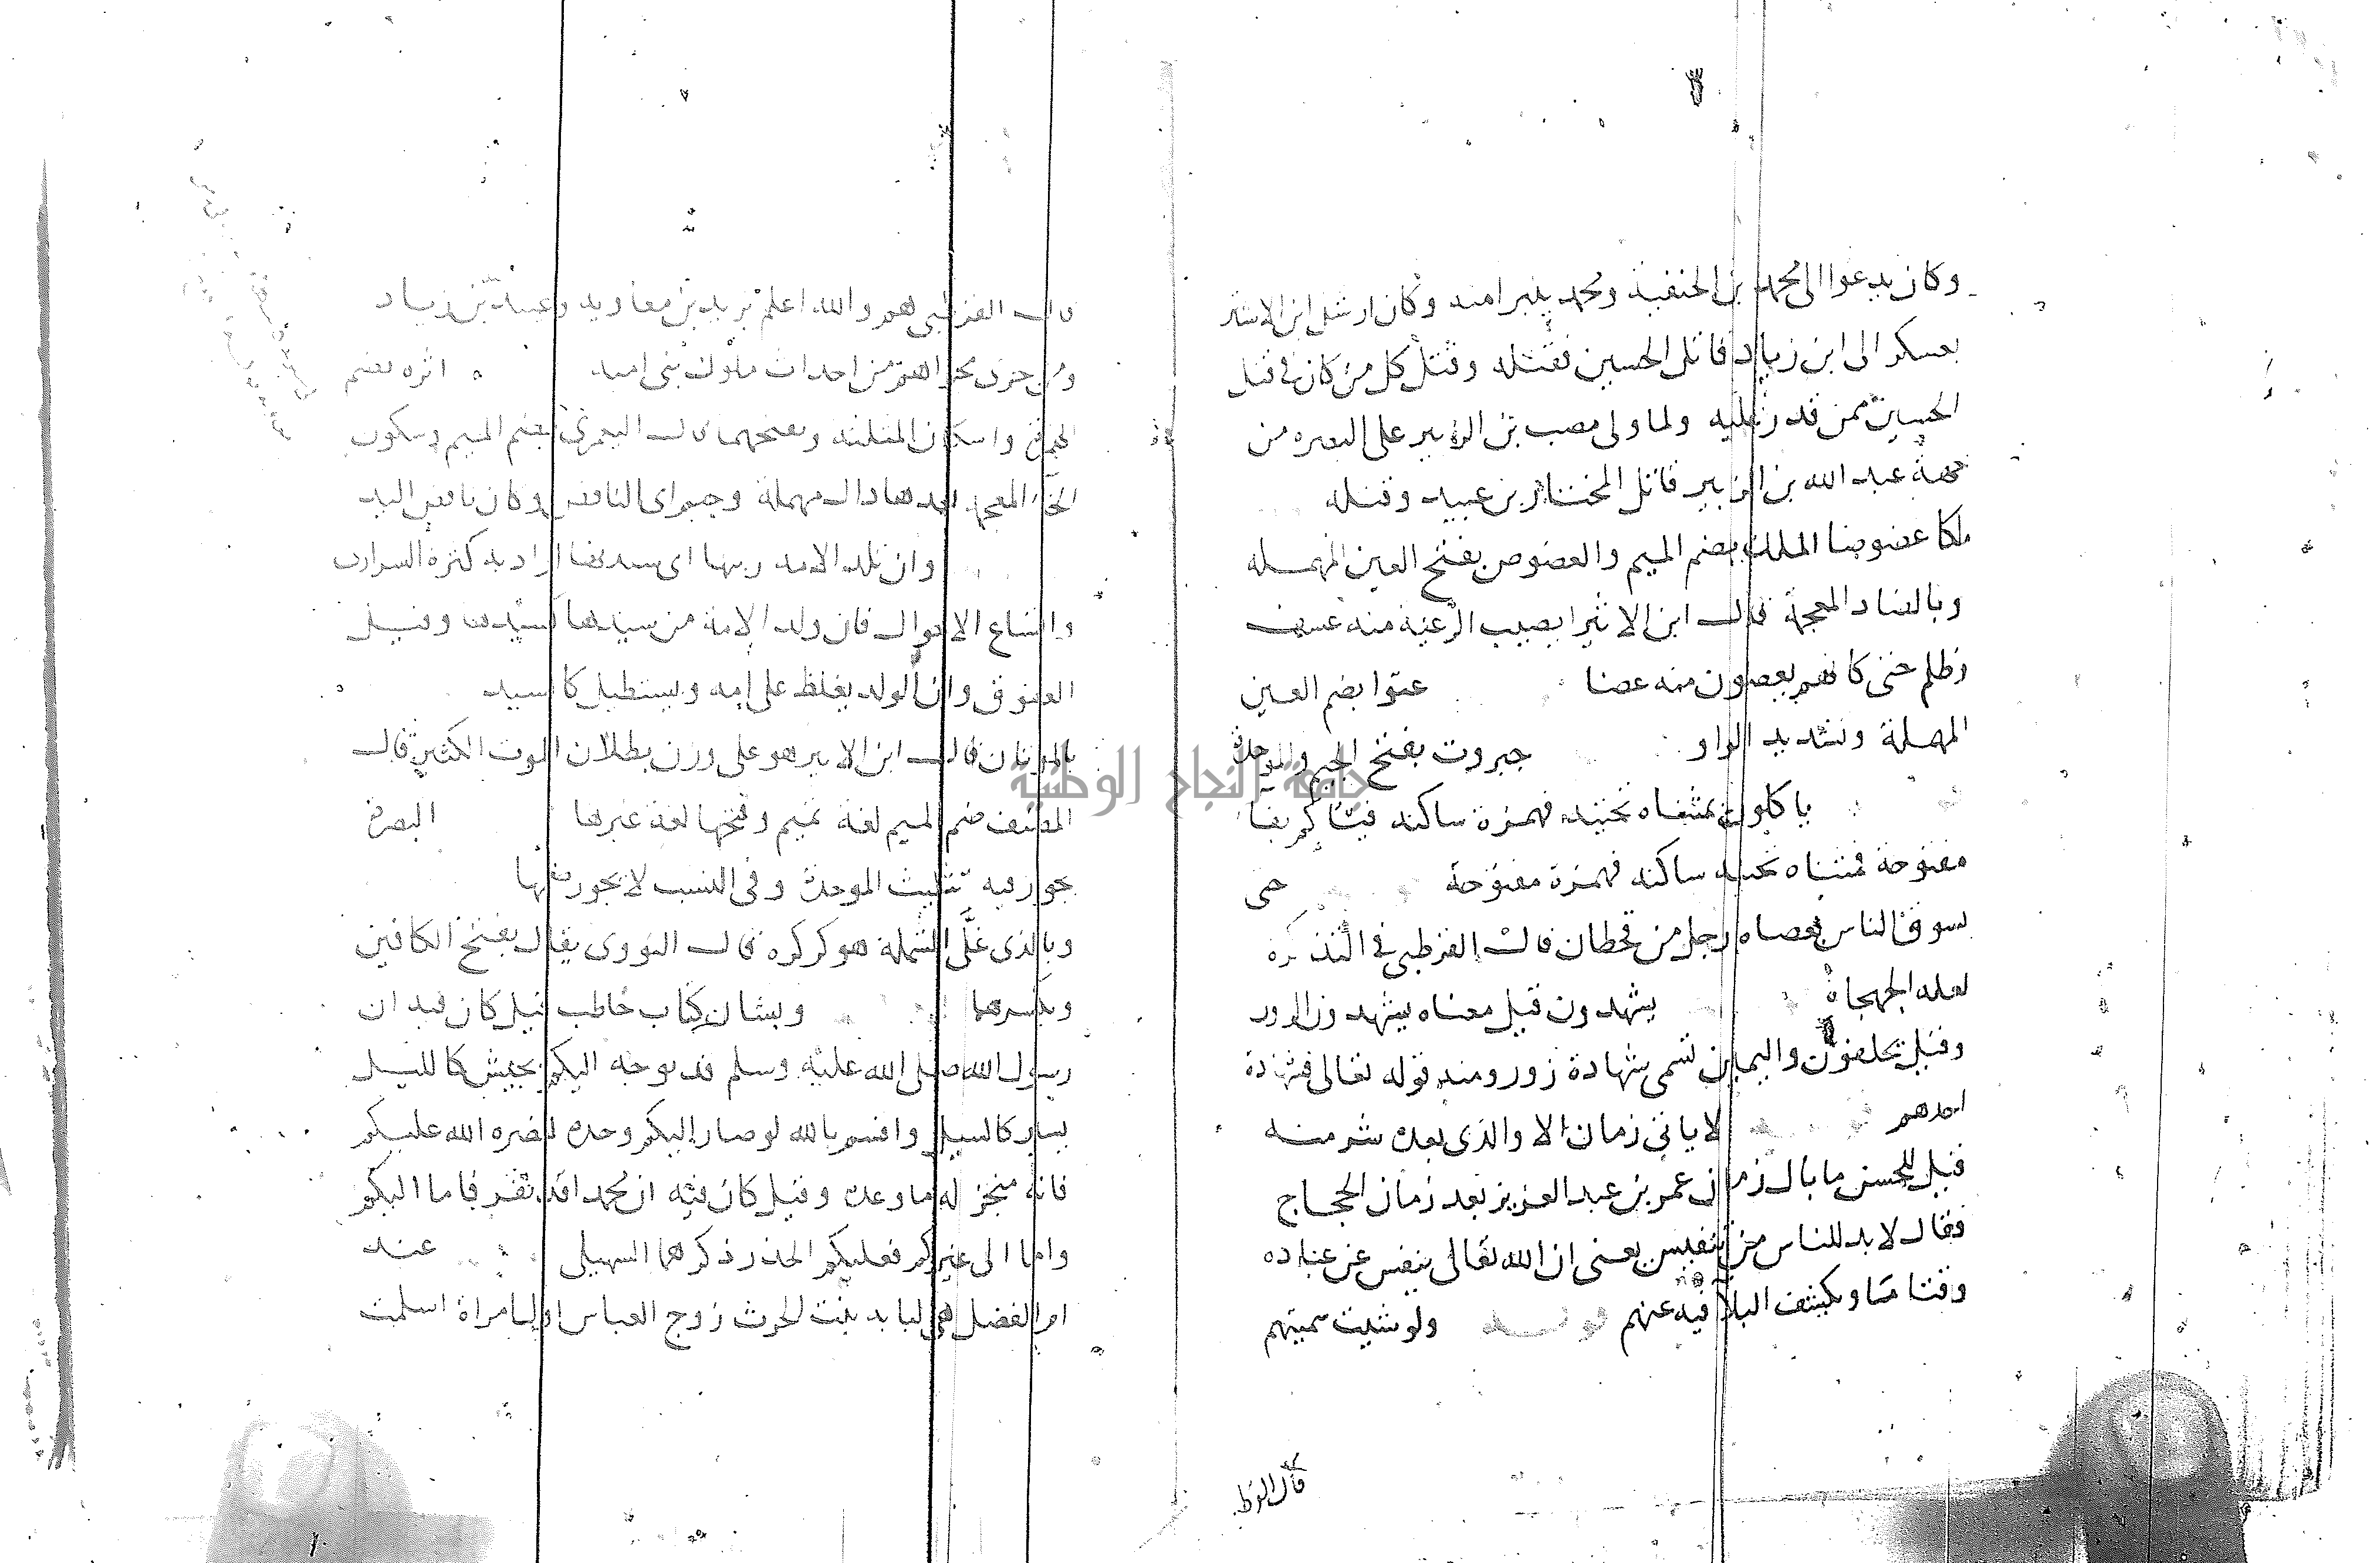 وكان يدعوا الى محمد بن الحنفية ومحمد يتبرا منه وكان ارسل ابن الاشتر
بعسكر الى ابن زياد قاتل الحسين فقتله وقتل كل من كان في قتل
الحسين ممن قدر عليه ولما ولى مصعب بن الزبير على البصره من
جهة عبد الله بن الزبير قاتل المختار بن عبيد وقتله
ملكا عضوضا الملك بضم الميم والعضوض بفتح العين المهمله
وبالضاد المعجمة قال ابن الاثير يصيب الرعية منه عسف
وظلم حتى كانهم يعضون منه عضا عتوا بضم العين
المهملة وتشديد الواو جبروت بفتح الجيم والموحدة
ياكلون بمثناه تحتيه فهمزة ساكنه
مفتوحة فمثناه تحتيه ساكنه فهمزة مفتوحة حتى
يسوق الناس بعصاه رجل من قحطان قال القرطبي في التذكره
لعله الجهجاه يشهدون قيل معناه يشهدون الزور
وقيل يحلفون واليمين تسمى شهادة زور ومنه قوله تعالى فشهادة
احدهم لا ياتي زمان الا والذى بعده شر منه
قيل للحسن ما بال زمان عمر بن عبد العزيز بعد زمان الحجاج
فقال لا بد للناس من تنفيس يعنى ان الله تعالى ينفس عن عباده
وقتا مّا ويكشف البلا فيه عنهم ولو شيت سميتهم
قال القرط
قال القرطبي هم والله اعلم يزيد بن معاويه وعبيد الله بن زياد
ومن جرى مجراهم من احداث ملوك بنى اميه اثره بضم
الهمزة واسكان المثلثه وبفتحهما قال بضم الميم وسكون
الخاء المعجمه بعدها دال مهملة وجيم اى الناقص وكان ناقص اليد
وان تلد الامه ربتها اى سيدتها اراد به كثرة السرارى
واتساع الاموال فان ولد الامة من سيدها كسيدها وقيل
العقوق وان الولد يغلظ على امه ويستطيل كالسيد
بالموتان قال ابن الاثير هو على وزن بطلان الموت الكثير قال
المصنف ضم الميم لغة تميم وفتحها لغة غيرها البصرة
يجوز فيه تثليث الموحدة وفى النسب لا يجوز ضمها
وبالذى غلَّ الشملة هو كركره قال النووى يقال بفتح الكافين
وبكسرهما وبشان كتاب حاطب قيل كان فيه ان
رسول الله صلى الله عليه وسلم قد توجه اليكم بجيش كالليل
يسير كالسيل واقسم بالله لو صار اليكم وحده لنصره الله عليكم
فانه منجز له ما وعده وقيل كان فيه ان محمدا قد نفر فاما اليكم
واما الى غيركم فعليكم الحذر ذكرهما السهيلى عند
ام الفضل هى لبابه بنت الحرث زوج العباس اول امراة اسلمت
جامعة النجاح الوطنية